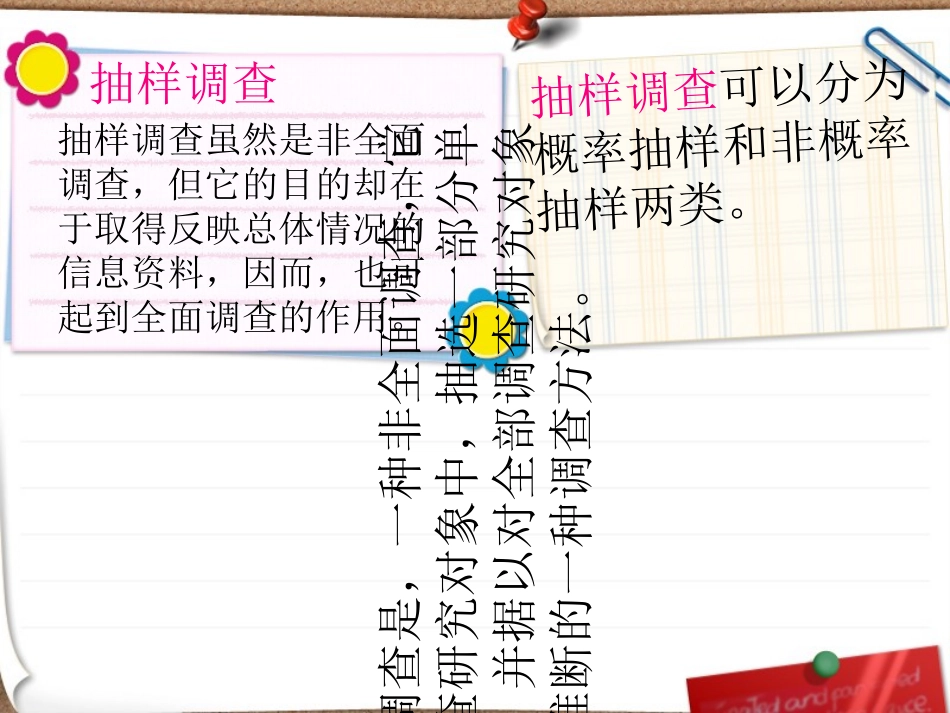 抽样调查
抽样调查虽然是非全面
调查，但它的目的却在
于取得反映总体情况的
信息资料，因而，也可
起到全面调查的作用。
抽样调查可以分为
概率抽样和非概率
抽样两类。
调查是，一种非全面调查，
查研究对象中，抽选一部分单
并据以对全部调查研究对象
推断的一种调查方法。